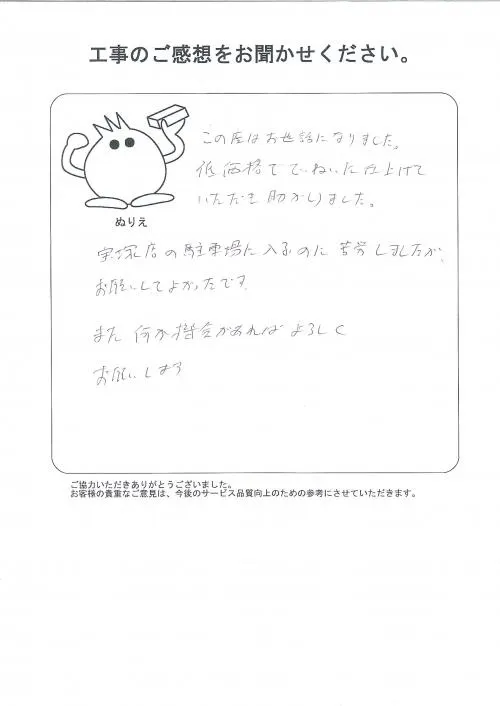 工事のご感想をお聞かせください。
この度はお世話になりました。
低価格でていねいに仕上げて
いただき助かりました。
ぬりえ
宝塚店の駐車場に入るのに苦労しましたが、
お願いしてよかったです。
また何か機会があればよろしく
お願いします
ご協力いただきありがとうございました。
お客様の貴重なご意見は、今後のサービス品質向上のための参考にさせていただきます。